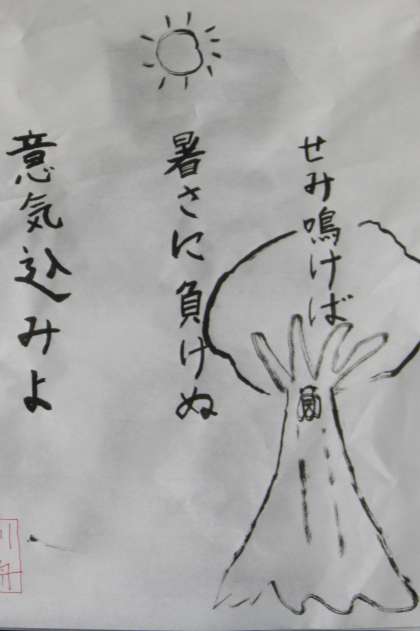 せみ鳴けば
暑さに負けぬ
意気込みよ